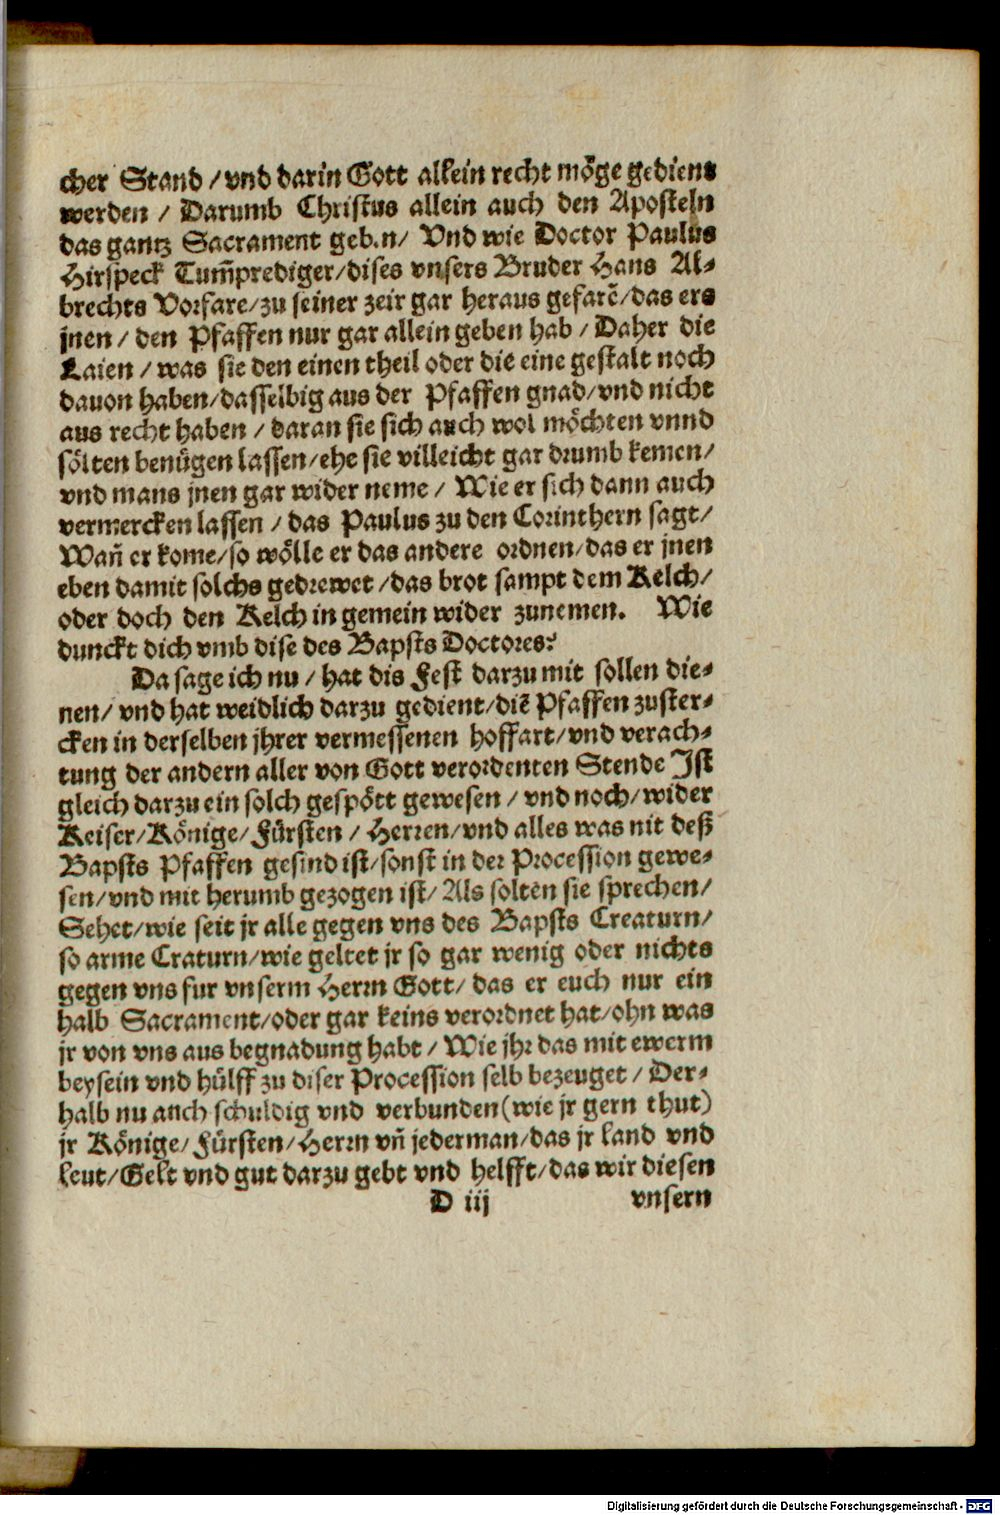 cher Stand / vnd darin Gott allein recht möge gedient
werden / Darumb Christus allein auch den Aposteln
das gantz Sacrament geb.n / Vnd wie Doctor Paulus
Hirspeck Tum̃prediger / dises vnsers Bruder Hans Al-
brechts Vorfare / zu seiner zeir gar heraus gefarẽ / das ers
jnen / den Pfaffen nur gar allein geben hab / Daher die
Laien / was sie den einen theil oder die eine gestalt noch
dauon haben / dasselbig aus der Pfaffen gnad / vnd nicht
aus recht haben / daran sie sich auch wol möchten vnnd
sölten benügen lassen / ehe sie villeicht gar drumb kemen /
vnd mans jnen gar wider neme / Wie er sich dann auch
vermercken lassen / das Paulus zu den Corinthern sagt /
Wañ er kome / so wölle er das andere ordnen / das er jnen
eben damit solchs gedrewet / das brot sampt dem Kelch /
oder doch den Kelch in gemein wider zunemen. Wie
dunckt dich vmb dise des Bapsts Doctores?
Da sage ich nu / hat dis Fest darzu mit sollen die-
nen / vnd hat weidlich darzu gedient / diẽ Pfaffen zuster-
cken in derselben jhrer vermessenen hoffart / vnd verach-
tung der andern aller von Gott verordenten Stende Ist
gleich darzu ein solch gespött gewesen / vnd noch / wider
Keiser / Könige / Fürsten / Herren / vnd alles was nit deß
Bapsts Pfaffen gesind ist / sonst in der Procession gewe-
sen / vnd mit herumb gezogen ist / Als solten sie sprechen /
Sehet / wie seit jr alle gegen vns des Bapsts Creaturn /
so arme Craturn / wie geltet jr so gar wenig oder nichts
gegen vns fur vnserm Herrn Gott / das er euch nur ein
halb Sacrament / oder gar keins verordnet hat / ohn was
jr von vns aus begnadung habt / Wie jhr das mit ewerm
beysein vnd hülff zu diser Procession selb bezeuget / Der-
halb nu auch schuldig vnd verbunden (wie jr gern thut)
jr Könige / Fürsten / Herrn vñ jederman / das jr land vnd
leut / Gelt vnd gut darzu gebt vnd helfft / das wir diesen
D iij vnsern
Digitalisierung gefördert durch die Deutsche Forschungsgemeinschaft - DFG